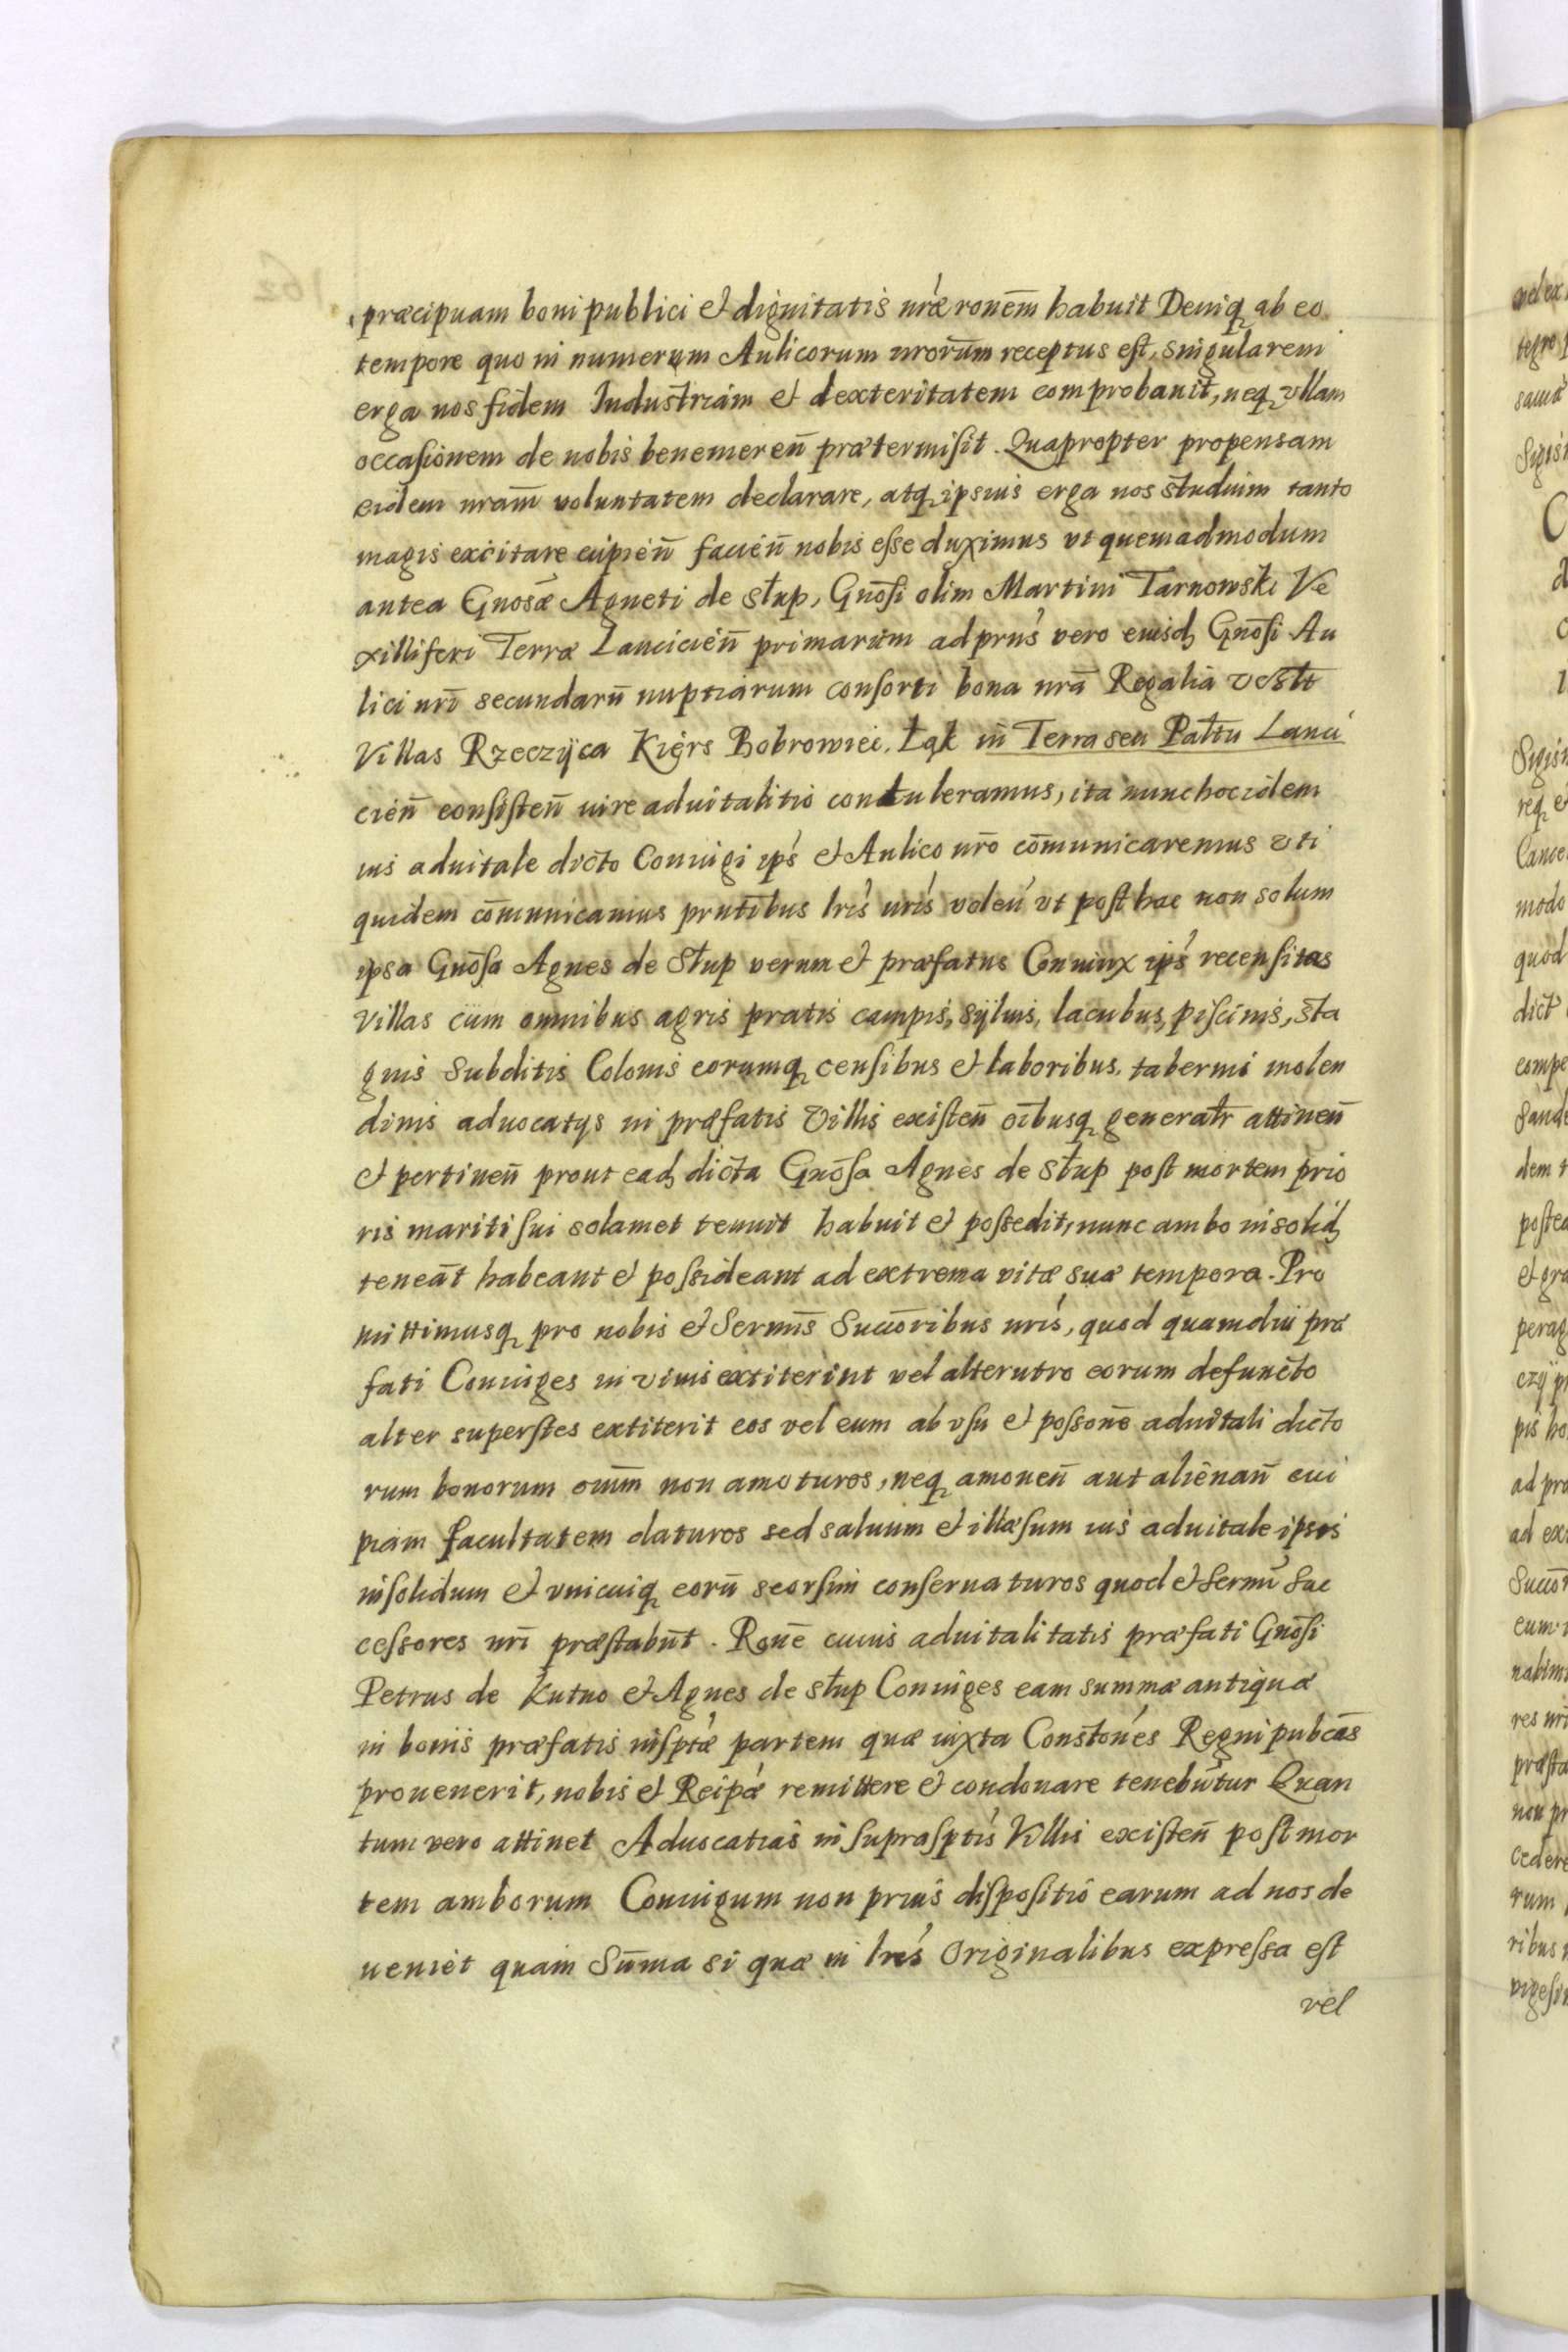 præcipuam boni publici et dignitatis nr̃æ ronem̃ habuit Deniq, ab eo
tempore quo in numerum Aulicorum nrorum̃ receptus est, singularem
erga nos fidem Industriam et dexteritatem comprobauit, neq, vllam
occasionem de nobis benemereñ prætermisit. Quapropter propensam
eidem nram̃ voluntatem declarare, atq, ipsius erga nos studium tanto
magis excitare cupieñ facieñ nobis esse duximus vt quemadmodum
antea Gnosæ̃ Agneti de Słup, Gnõsi olim Martini Tarnowski Ve
xilliferi Terræ Lancicieñ primarum ad prns̃ vero eiusd, Gnõsi Au
lici nrĩ secundarũ nuptiarum consorti bona nrã Regalia vcslt̃
Villas Rzeczÿca Kiers Bobrowiei. Łąk in Terra seu Paltũ Lanci
cieñ consisteñ iure aduitalitio contuleramus, ita nunc hoc idem
ius aduitale dicto Coniugi ips̃ et Aulico nrõ cõmunicaremus vti
quidem cõmunicamus pñtibus lris̃ nris̃ voleñ vt posthac non solum
ipsa Gnõsa Agnes de Słup verum et præfatus Coniunx ips̃ recensitas
Villas cum omnibus agris pratis campis, sÿluis, lacubus, piscinis, sta
gnis Subditis Colonis eorumq, censibus et laboribus, tabernis molen
dinis aduocatys in præfatis Villis existeñ oĩbusq, generalr̃ attineñ
et pertineñ prout ead, dicta Gnõsa Agnes de Słup post mortem prio
ris mariti sui solamet tenuit habuit et possedit, nunc ambo insolid,
teneãt habeant et possideant ad extrema vitæ suæ tempora. Pro
mittimusq, pro nobis et Sermis̃ Succõribus nris̃, quod quamdiu præ
fati Coniuges in viuis extiterint vel alterutro eorum defuncto
alter superstes extiterit eos vel eum ab vsu et possonẽ aduitali dicto
rum bonorum oım̃ non amoturos, neq, amoueñ aut alienañ cui
piam facultatem daturos sed saluum et illæsum ius aduitale ipsis
insolidum et vnicuiq, eorũ seorsim conseruaturos quod et Sermĩ Suc
cessores nrĩ præstabũt. Ronẽ cuius aduitalitatis præfati Gnõsi
Petrus de Kutno et Agnes de Słup Coniuges eam summæ antiquæ
in bonis præfatis insptæ̃ partem quæ iuxta Constoñes Regni pubcas̃
prouenerit, nobis et Reipæ̃ remittere et condonare tenebũtur Quan
tum vero attinet Aduocatias in suprasptis̃ Villis existeñ post mor
tem amborum Coniugum non prius dispositio earum ad nos de
ueniet quam Sum̃a si quæ in lris̃ Originalibus expressa est
vel